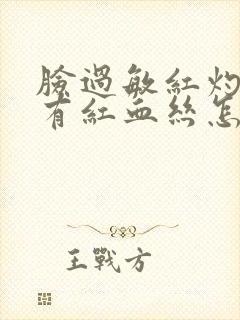 臉過敏紅灼
有紅血絲怎
王戰方